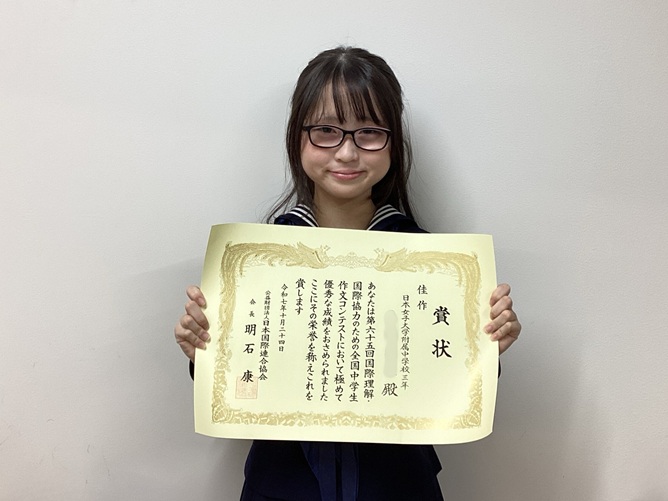 賞状
佳作
日本女子大学附属中学校三年
殿
あなたは第六十五回国際理解・
国際協力のための全国中学生
作文コンテストにおいて極めて
優秀な成績をおさめられました
ここにその栄誉を称えこれを
賞します
令和七年十月二十四日
公益財団法人日本国際連合協会
会長 明石康